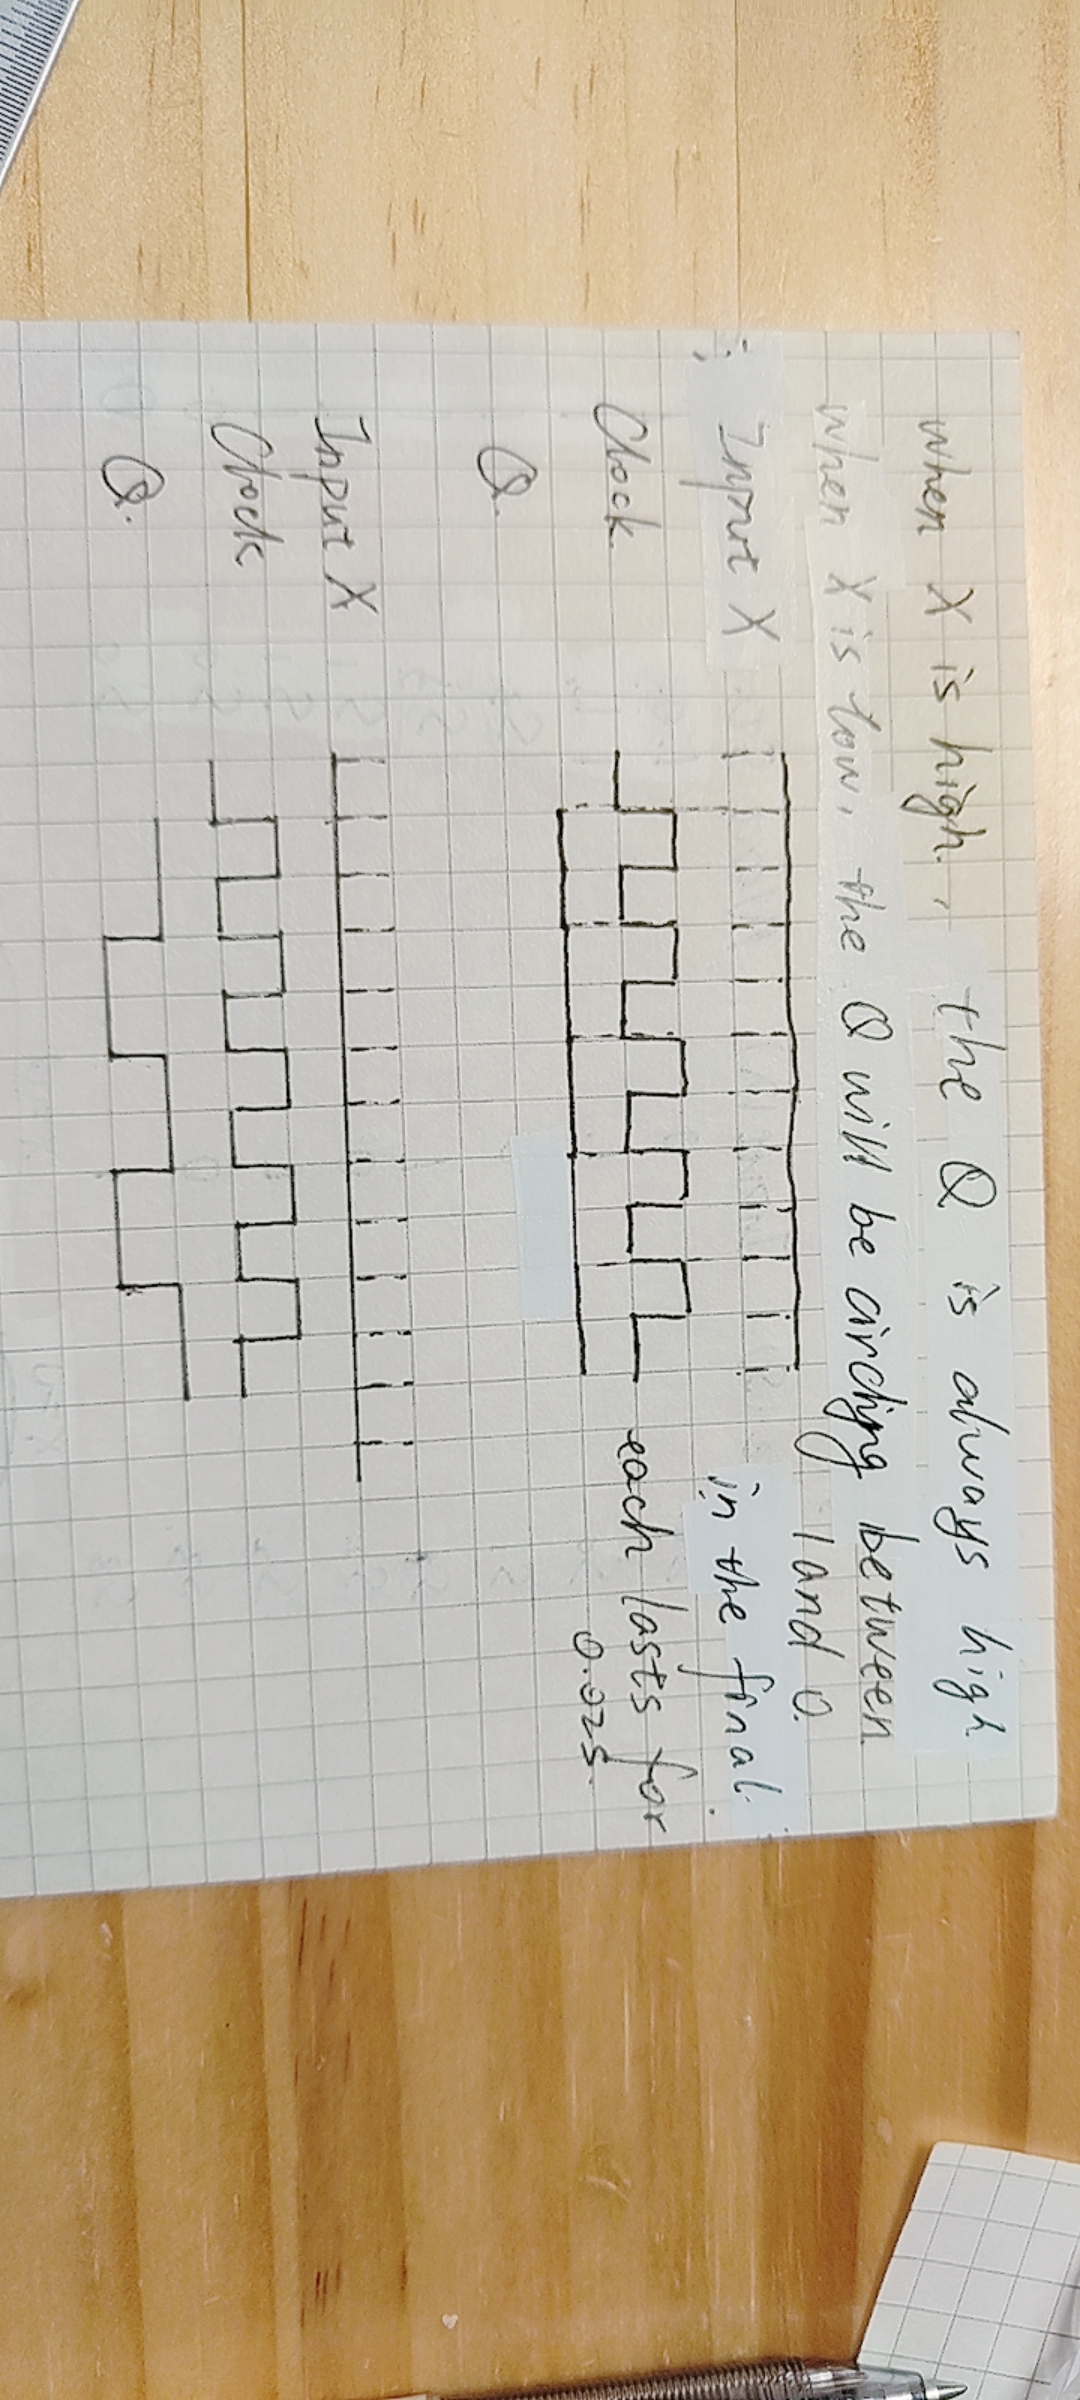 when X is high, the Q is always high
when X is low, the Q will be circling between
1 and 0.
in the final.
: Input X
Clock.
each lasts for
0.02s.
Q.
Input X
Clock
Q.